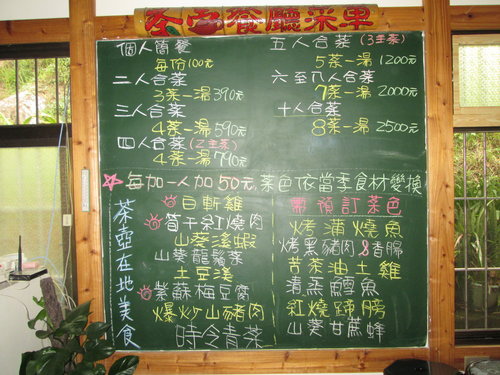 茶壺餐廳菜單
個人簡餐
每份100元
二人合菜
3菜一湯390元
三人合菜
4菜一湯590元
四人合菜(2主菜)
4菜一湯790元
五人合菜(3主菜)
5菜一湯1200元
六至八人合菜
7菜一湯2000元
十人合菜
8菜一湯2500元
每加一人加50元,菜色依當季食材變換
茶壺在地美食
白斬雞
筍干紅燒肉
山葵溪蝦
山葵龍鬚菜
土豆溪
紫蘇梅豆腐
爆炒山豬肉
時令青菜
需預訂菜色
烤滿燒魚
烤黑豬肉&香腸
苦茶油土雞
清蒸鱘魚
紅燒蹄膀
山葵甘蔗蜂